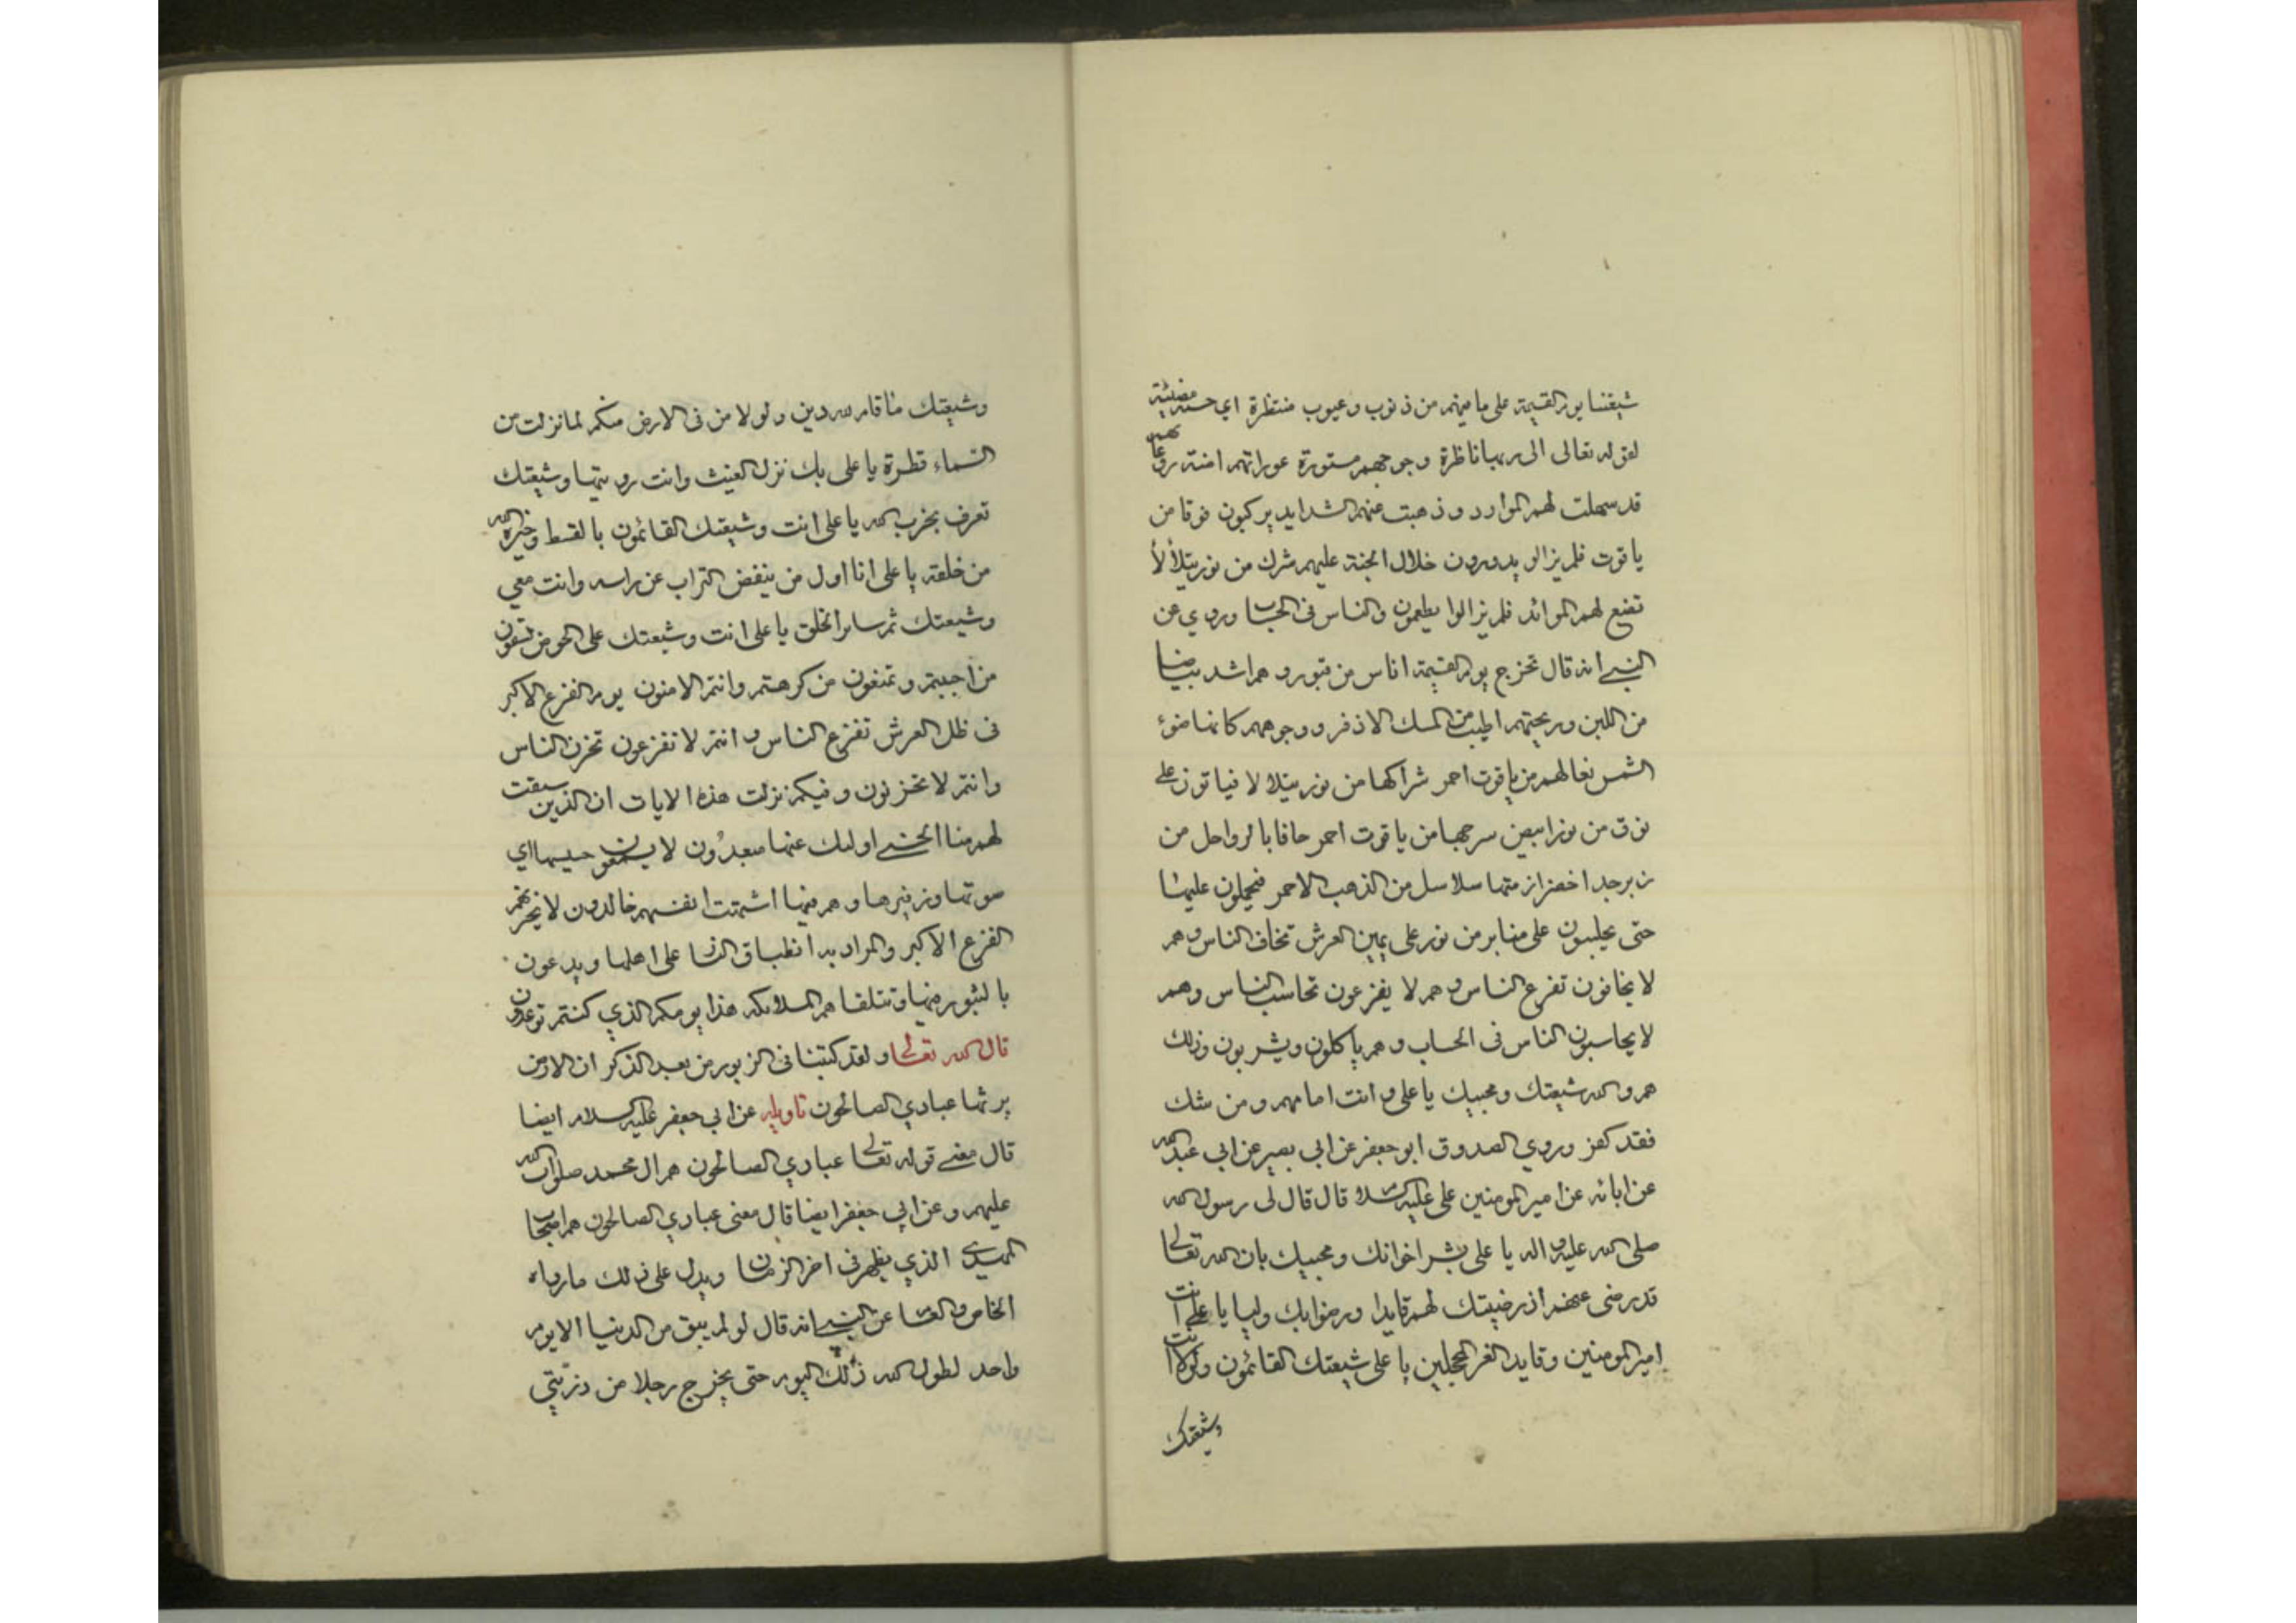 شيعتنا يوم القيمة على ما منهم من ذنوب وعيوب منتظرة اي حسنة مضيئة
لقوله تعالى الى ربها ناظرة وجوههم مستورة عوراتهم امنة روعاتهم
قد سهلت لهم الموارد وذهبت عنهم الشدايد يركبون نوقا من
ياقوت فلم يزالو يدورون خلال الجنة عليهم شرك من نور يتلألأ
تضع لهم الموائد فلم يزالوا يطعمون والناس في الحساب وروي عن
النبي انه قال تخرج يوم القيمة اناس من قبورهم اشد بياضا
من اللبن وريحتهم اطيب من المسك الاذفر ووجوههم كانها ضوء
الشمس نعالهم من ياقوت احمر شراكها من نور يتلالا فياتون على
نوق من نور ابيض سرجها من ياقوت احمر حافا بالرواحل من
زبرجد اخضر ازمتها سلاسل من الذهب الاحمر فيحملون عليها
حتى يجلسون على منابر من نور على يمين العرش تخاف الناس وهم
لا يخافون تفزع الناس وهم لا يفزعون تحاسب الناس وهم
لا يحاسبون الناس في الحساب وهم ياكلون ويشربون وذلك
هم والله شيعتك ومحبيك يا علي وانت امامهم ومن شك
فقد كفر وروي الصدوق ابو جعفر عن ابي بصير عن ابي عبد الله
عن ابائه عن امير المومنين علي عليه السلام قال قال لي رسول الله
صلى الله عليه واله يا علي بشر اخوانك ومحبيك بان الله تعالى
قد رضى عنهم اذ رضيتك لهم قايدا ورضوا بك وليا يا علي انت
امير المومنين وقايد الغر المحجلين يا على شيعتك القائمون ولولا انت
وشيعتك
وشيعتك ما قام لله دين ولولا من في الارض منكم لما نزلت من
السماء قطرة يا على بك نزل الغيث وانت وشيعتك
تعرف بحزب الله يا على انت وشيعتك القائمون بالقسط وخيرة الله
من خلقه يا على انا اول من ينفض التراب عن راسه وانت معي
وشيعتك ثم ساير الخلق يا على انت وشيعتك على الحوض تسقون
من احببتم وتمنعون من كرهتم وانتم الامنون يوم الفزع الاكبر
في ظل العرش تفزع الناس وانتم لا تفزعون تحزن الناس
وانتم لا تحزنون وفيكم نزلت هذه الايات ان الذين سبقت
لهم منا الحسنى اوليك عنها مبعدون لا يسمعون حسيسها اي
صوتها وزفيرها وهم فيما اشتهت انفسهم خالدون لا يحزنهم
الفزع الاكبر والمراد به انطباق النار على اهلها ويدعون
بالثبور منها وتتلقاهم الملائكه هذا يومكم الذي كنتم توعدون
قال الله تعالى ولقد كتبنا في الزبور من بعد الذكر ان الارض
يرثها عبادي الصالحون تاويله عن ابي جعفر عليه السلام ايضا
قال معنى قوله تعالى عبادي الصالحون هم ال محمد صلوات الله
عليهم وعن ابي جعفر ايضا قال معنى عبادي الصالحون هم اصحاب
المهدي الذي يظهر في اخر الزمان ويدل على ذلك ما رواه
الخاص والعام عن النبي انه قال لو لم يبق من الدنيا الا يوم
واحد لطول الله ذلك اليوم حتى يخرج رجلا من ذريتي